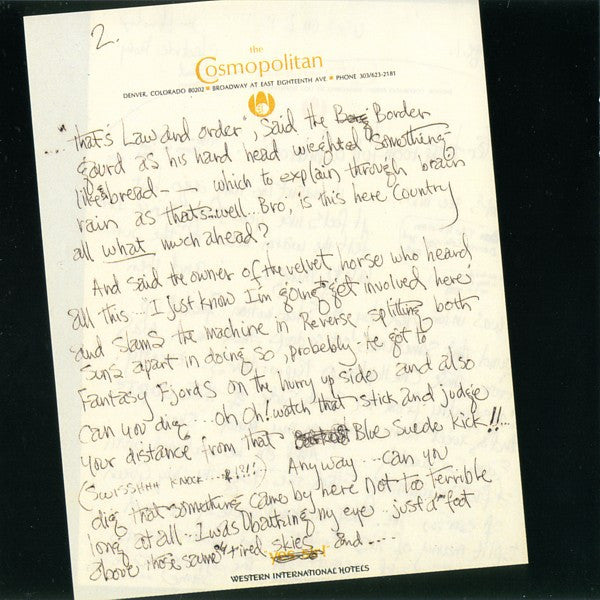 2.
the
Cosmopolitan
DENVER, COLORADO 80202 • BROADWAY AT EAST EIGHTEENTH AVE • PHONE 303/623-2181
... "that's Law and order", said the Border
gourd as his hard head weighted something
like bread - - which to explain through brain
rain as that's...well... Bro, is this here Country
all what much ahead?
And said the owner of the velvet horse who heard
all this... "I just know I'm going get involved here"
and slams the machine in Reverse splitting both
Suns apart in doing so, probebly - he got to
Fantasy Fjords on the hurry up side and also
Can you dig ... oh Oh! watch that stick and judge
your distance from that Blue Suede Kick!!...
(SWISSHHH KNOCK...!?!!) Anyway... can yu
dig that something came by here Not too terrible
long at all... I was my eye... just a foot
above those same ol' tired skies and ....
WESTERN INTERNATIONAL HOTELS